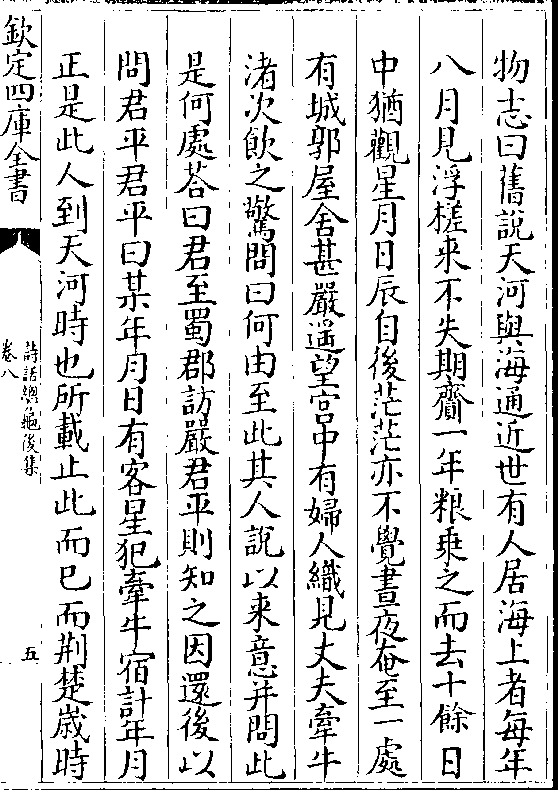 物志曰舊說天河與海通近世有人居海上者每年
八月見浮槎来不失期齎一年粮乗之而去十餘日
中猶觀星月日辰自後茫茫亦不覺晝夜奄至一處
有城郭屋舍甚嚴遥望宫中有婦人織見丈夫牽牛
渚次飲之驚問曰何由至此其人說以来意并問此
是何處荅曰君至蜀郡訪嚴君平則知之因還後以
問君平君平曰某年月日有客星犯牽牛宿計年月
正是此人到天河時也所載止此而已而荆楚歲時
欽定四庫全書
詩話總龜後集
卷八
五